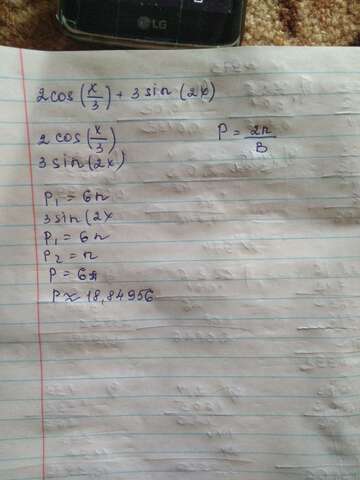 LG
2cos(x/3) + 3sin(2x)
2cos(x/3)
P = 2π/B
3sin(2x)
P₁ = 6π
3sin(2x
P₁ = 6π
P₂ = π
P = 6π
P ≈ 18,84956